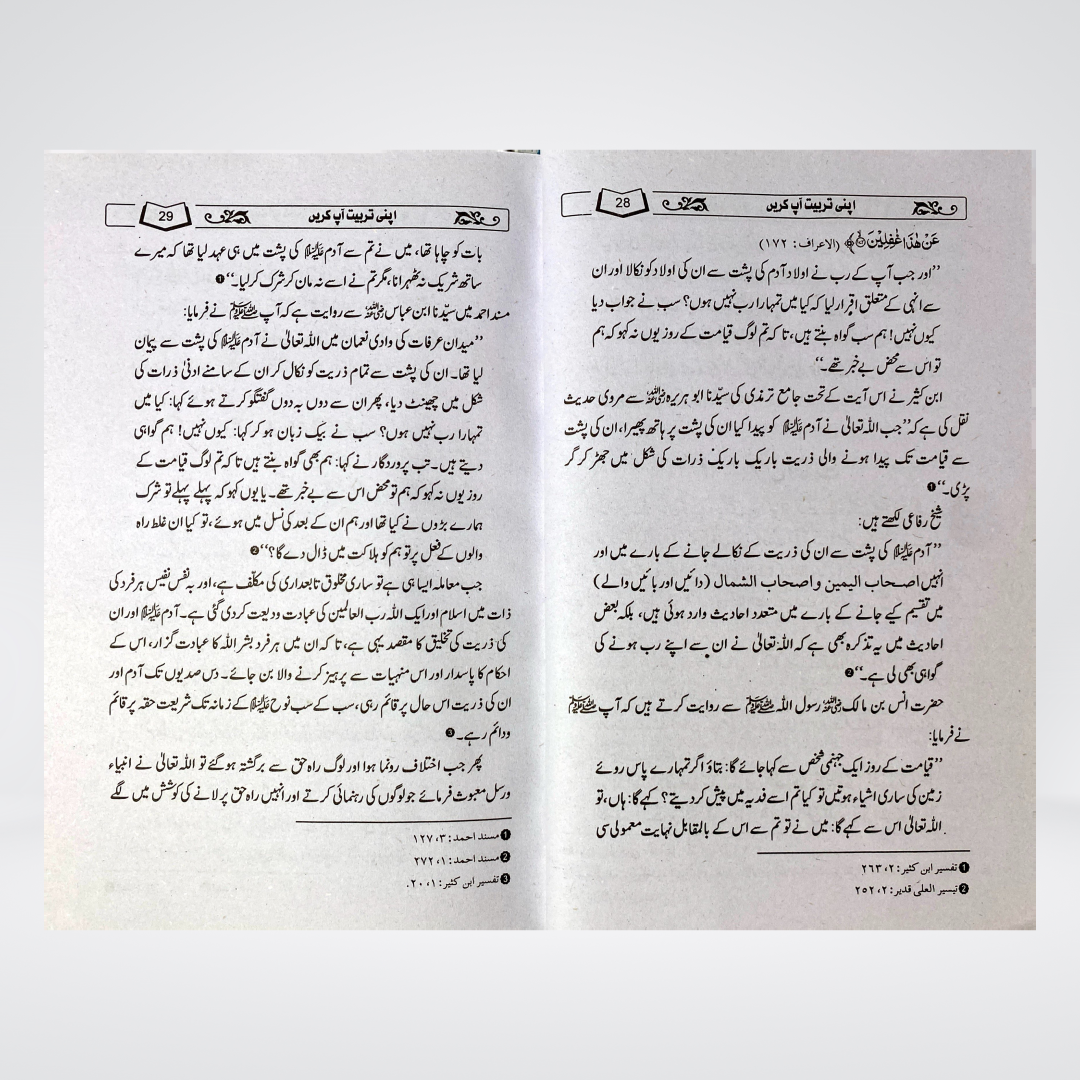 اپنی تربیت آپ کریں 28
عَنْ هٰذَا غٰفِلِیْنَ ﴾ (الاعراف: ١٧٢)
’’اور جب آپ کے رب نے اولاد آدم کی پشت سے ان کی اولاد کو نکالا اور ان
سے انہی کے متعلق اقرار لیا کہ کیا میں تمہارا رب نہیں ہوں؟ سب نے جواب دیا
کیوں نہیں! ہم سب گواہ بنتے ہیں، تا کہ تم لوگ قیامت کے روز یوں نہ کہو کہ ہم
تو اس سے محض بے خبر تھے۔‘‘
ابن کثیر نے اس آیت کے تحت جامع ترمذی کی سیّدنا ابو ہریرہ رضی اللہ عنہ سے مروی حدیث
نقل کی ہے کہ ’’جب اللہ تعالیٰ نے آدم علیہ السلام کو پیدا کیا ان کی پشت پر ہاتھ پھیرا، ان کی پشت
سے قیامت تک پیدا ہونے والی ذریت باریک باریک ذرات کی شکل میں جھڑ کر گر
پڑی۔‘‘ ❶
شیخ رفاعی لکھتے ہیں:
’’آدم علیہ السلام کی پشت سے ان کی ذریت کے نکالے جانے کے بارے میں اور
انہیں اصحاب الیمین و اصحاب الشمال (دائیں اور بائیں والے)
میں تقسیم کیے جانے کے بارے میں متعدد احادیث وارد ہوئی ہیں، بلکہ بعض
احادیث میں یہ تذکرہ بھی ہے کہ اللہ تعالیٰ نے ان سے اپنے رب ہونے کی
گواہی بھی لی ہے۔‘‘ ❷
حضرت انس بن مالک رضی اللہ عنہ رسول اللہ ﷺ سے روایت کرتے ہیں کہ آپ ﷺ
نے فرمایا:
’’قیامت کے روز ایک جہنمی شخص سے کہا جائے گا: بتاؤ اگر تمہارے پاس روئے
زمین کی ساری اشیاء ہوتیں تو کیا تم اسے فدیہ میں پیش کر دیتے؟ کہے گا: ہاں، تو
اللہ تعالیٰ اس سے کہے گا: میں نے تو تم سے اس کے بالمقابل نہایت معمولی سی
❶ تفسیر ابن کثیر: ٢، ٢٦٣
❷ تیسیر العلی قدیر: ٢، ٢٥٢
اپنی تربیت آپ کریں 29
بات کو چاہا تھا، میں نے تم سے آدم علیہ السلام کی پشت میں ہی عہد لیا تھا کہ میرے
ساتھ شریک نہ ٹھہرانا، مگر تم نے اسے نہ مان کر شرک کر لیا۔‘‘ ❶
مسند احمد میں سیّدنا ابن عباس رضی اللہ عنہ سے روایت ہے کہ آپ ﷺ نے فرمایا:
’’میدان عرفات کی وادی نعمان میں اللہ تعالیٰ نے آدم علیہ السلام کی پشت سے پیمان
لیا تھا۔ ان کی پشت سے تمام ذریت کو نکال کر ان کے سامنے ادنیٰ ذرات کی
شکل میں چھینٹ دیا، پھر ان سے دوں بہ دوں گفتگو کرتے ہوئے کہا: کیا میں
تمہارا رب نہیں ہوں؟ سب نے بیک زبان ہو کر کہا: کیوں نہیں! ہم گواہی
دیتے ہیں۔ تب پروردگار نے کہا: ہم بھی گواہ بنتے ہیں تا کہ تم لوگ قیامت کے
روز یوں نہ کہو کہ ہم تو محض اس سے بے خبر تھے۔ یا یوں کہو کہ پہلے پہلے تو شرک
ہمارے بڑوں نے کیا تھا اور ہم ان کے بعد کی نسل میں ہوئے، تو کیا ان غلط راہ
والوں کے فعل پر تو ہم کو ہلاکت میں ڈال دے گا؟‘‘ ❷
جب معاملہ ایسا ہی ہے تو ساری مخلوق تابعداری کی مکلّف ہے، اور بہ نفس نفیس ہر فرد کی
ذات میں اسلام اور ایک اللہ رب العالمین کی عبادت ودیعت کر دی گئی ہے۔ آدم علیہ السلام اور ان
کی ذریت کی تخلیق کا مقصد یہی ہے، تا کہ ان میں ہر فرد بشر اللہ کا عبادت گزار، اس کے
احکام کا پاسدار اور اس منہیات سے پرہیز کرنے والا بن جائے۔ دس صدیوں تک آدم اور
ان کی ذریت اس حال پر قائم رہی، سب کے سب نوح علیہ السلام کے زمانہ تک شریعت حقہ پر قائم
و دائم رہے۔ ❸
پھر جب اختلاف رونما ہوا اور لوگ راہ حق سے برگشتہ ہو گئے تو اللہ تعالیٰ نے انبیاء
ورسل مبعوث فرمائے جو لوگوں کی رہنمائی کرتے اور انہیں راہ حق پر لانے کی کوشش میں لگے
❶ مسند احمد: ٣، ١٢٧
❷ مسند احمد: ١، ٢٧٢
❸ تفسیر ابن کثیر: ١، ٢٠.